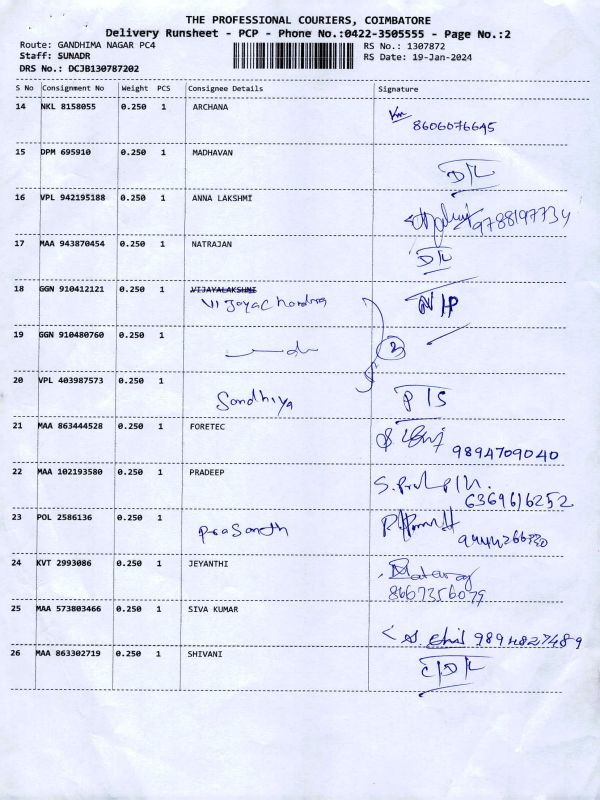 THE PROFESSIONAL COURIERS, COIMBATORE
Delivery Runsheet - PCP - Phone No.:0422-3505555 - Page No.:2
Route: GANDHIMA NAGAR PC4 RS No.: 1307872
Staff: SUNADR RS Date: 19-Jan-2024
DRS No.: DCJB130787202
S No Consignment No Weight PCS Consignee Details Signature
14 NKL 8158055 0.250 1 ARCHANA
8606076645
15 DPM 695910 0.250 1 MADHAVAN
D/L
16 VPL 942195188 0.250 1 ANNA LAKSHMI
9788197734
17 MAA 943870454 0.250 1 NATRAJAN
D/L
18 GGN 910412121 0.250 1 VIJAYALAKSHMI
Vijayachandra N/P
19 GGN 910480760 0.250 1
do 3
20 VPL 403987573 0.250 1
Sandhiya P/S
21 MAA 863444528 0.250 1 FORETEC
9894709040
22 MAA 102193580 0.250 1 PRADEEP
6369616252
23 POL 2586136 0.250 1
Prasaneth 9444266330
24 KVT 2993086 0.250 1 JEYANTHI
8667356079
25 MAA 573803466 0.250 1 SIVA KUMAR
9894827489
26 MAA 863302719 0.250 1 SHIVANI
C/D/L